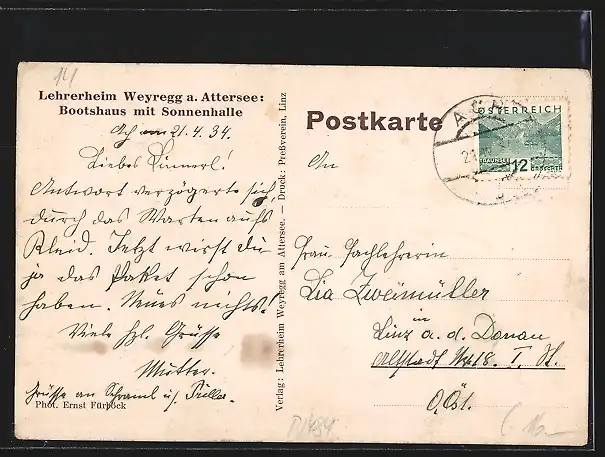 14
Lehrerheim Weyregg a. Attersee:
Bootshaus mit Sonnenhalle
am 21.4.34.
Liebes
Antwort verzögerte sich,
durch das Warten aufs
Kleid. Jetzt wirst du
ja das Paket schon
haben. Neues nichts!
Viele hzl. Grüsse
Mutter.
Grüsse an
Phot. Ernst Fürböck
Verlag: Lehrerheim Weyregg am Attersee. — Druck: Preßverein, Linz
Postkarte
ÖSTERREICH
12
GROSCHEN
An
Frau Fachlehrerin
Lia Zweimüller
in
Linz a. d. Donau
Altstadt Nr. 18. I. St.
O.Öst.